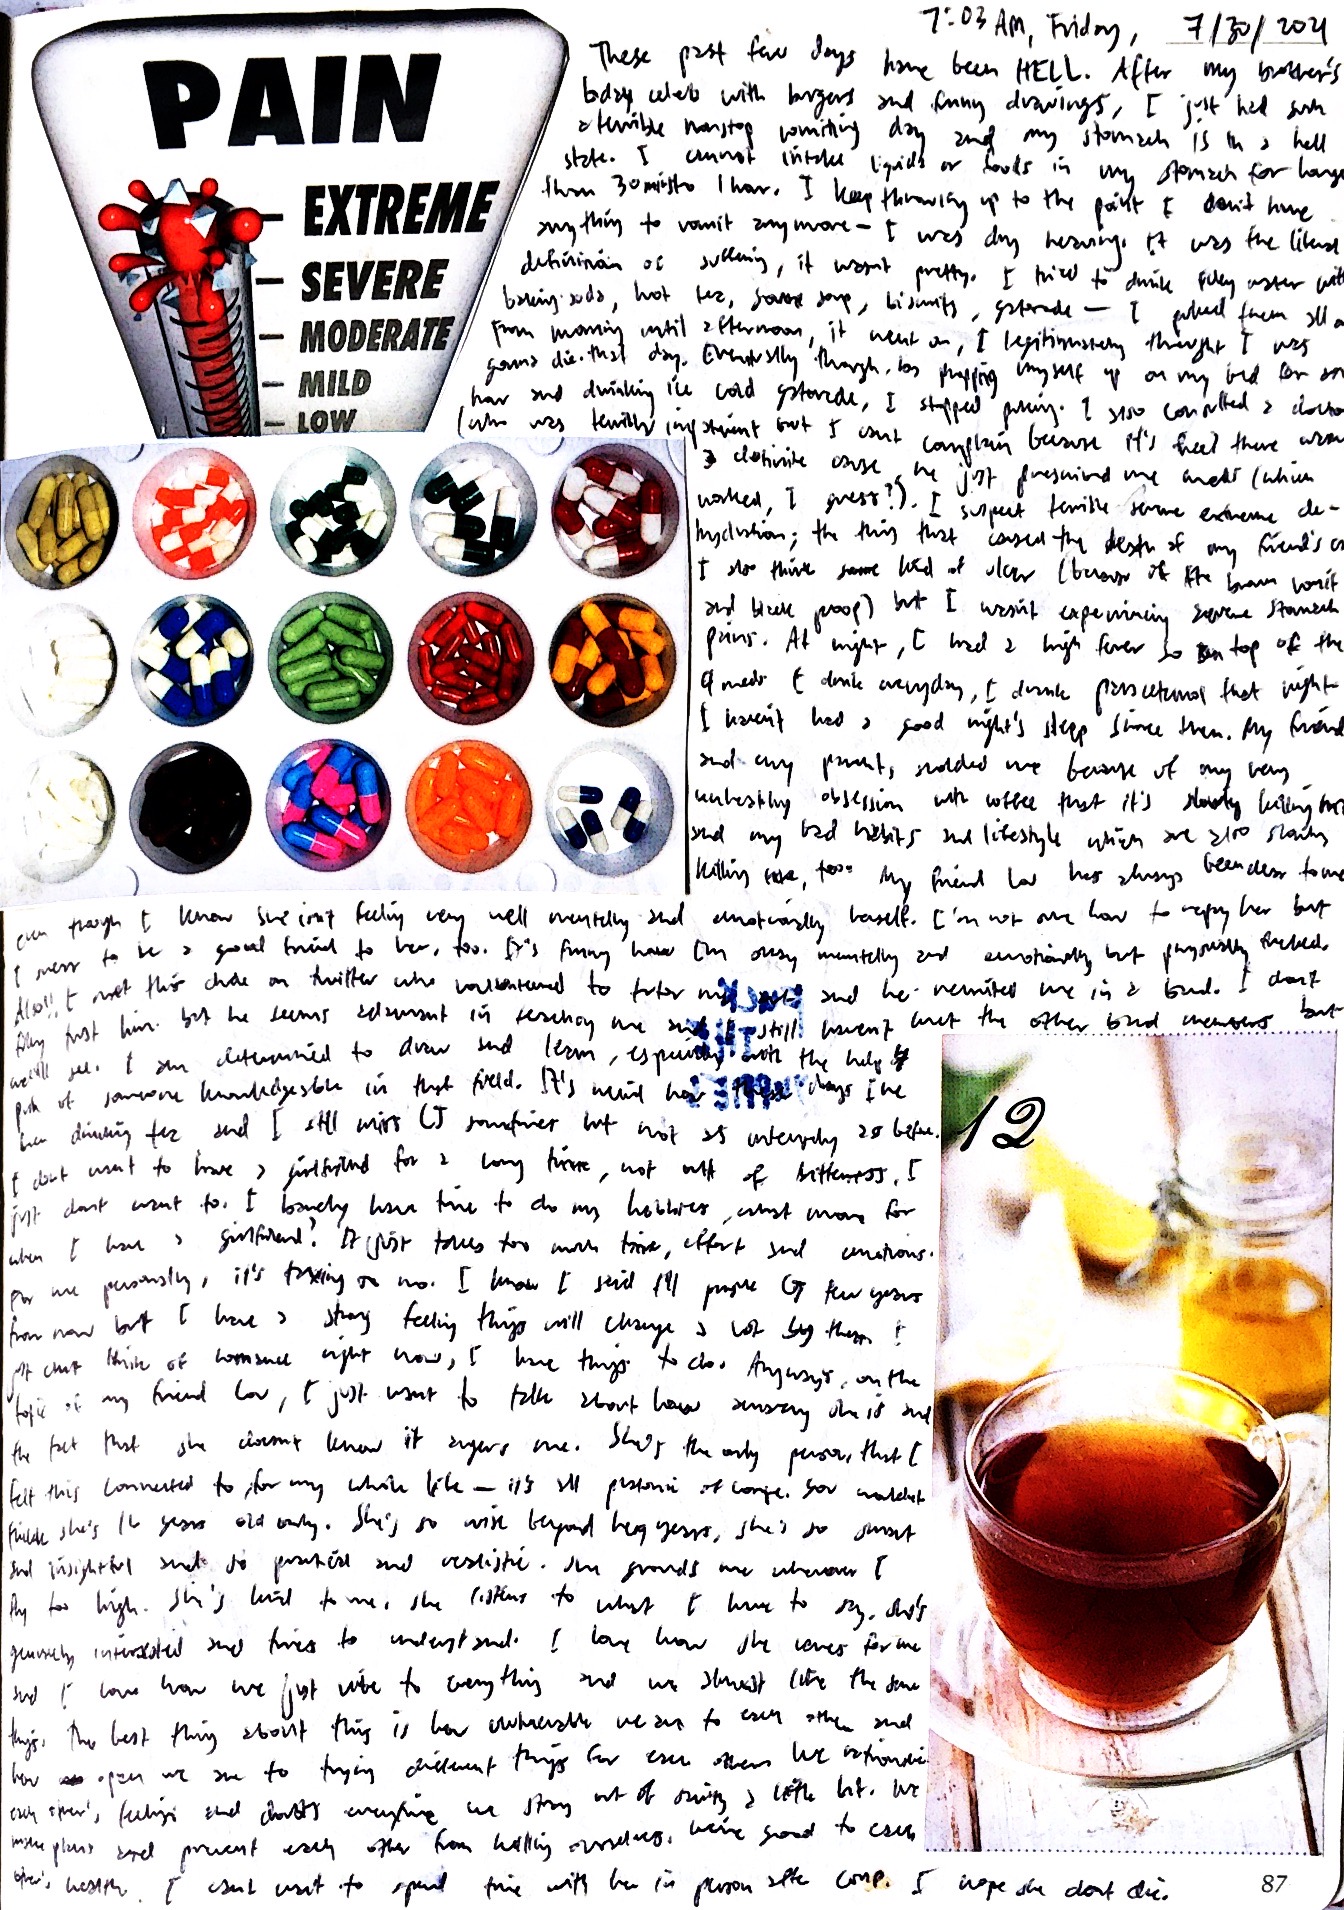 7:03 AM, Friday, 7/30/2021
PAIN
EXTREME
SEVERE
MODERATE
MILD
LOW
These past few days have been HELL. After my brother's
bday celeb with burgers and funny drawings, I just had such
a terrible nonstop vomiting day and my stomach is in a hell
state. I cannot intake liquids or foods in my stomach for longe
than 30 mins to 1 hour. I keep throwing up to the point I don't have
anything to vomit anymore — I was dry heaving. It was the literal
definition of suffering, it wasn't pretty. I tried to drink water with
baking soda, hot tea, soup, biscuits, gatorade — I puked them all o
From morning until afternoon, it went on, I legitimately thought I was
gonna die that day. Eventually though, by propping myself up on my bed for an
hour and drinking ice cold gatorade, I stopped puking. I also consulted a docto
(who was terribly impatient but I can't complain because it's free) there wasn
a definite cause, he just prescribed me meds (which
worked, I guess?). I suspect terrible severe extreme de-
hydration; the thing that caused the death of my friend's
I also think some kind of ulcer (because of the brown vomit
and black poop) but I wasn't experiencing severe stomach
pains. At night, I had a high fever so on top of the
9 meds I drink everyday, I drank paracetamol that night
I haven't had a good night's sleep since then. My friend
and my parents scolded me because of my very
unhealthy obsession with coffee that it's slowly killing me
and my bad habits and lifestyle which are also slowly
killing me, too. My friend Lou has always been dear to me
even though I know she isn't feeling very well mentally and emotionally herself. I'm not sure how to repay her but
I swear to be a good friend to her, too. It's funny how I'm okay mentally and emotionally but physically fucked.
Also!! I met this dude on twitter who volunteered to tutor me and he recruited me in a band. I don't
fully trust him but he seems adamant in teaching me and I still haven't met the other band members but
we'll see. I am determined to draw and learn, especially with the help &
push of someone knowledgeable in that field. It's weird how these days I've
been drinking tea and I still miss CJ sometimes but not as intensely as before.
I don't want to have a girlfriend for a long time, not out of bitterness, I
just don't want to. I barely have time to do my hobbies, what more for
when I have a girlfriend? It just takes too much time, effort and emotions.
For me personally, it's taxing on me. I know I said I'll pursue CJ few years
from now but I have a strong feeling things will change a lot by then. I
just can't think of romance right now, I have things to do. Anyways, on the
topic of my friend Lou, I just want to talk about how amazing she is and
the fact that she doesn't know it angers me. She's the only person that I
felt this connected to for my whole life — it's all platonic of course. You wouldn't
think she's 16 years old only. She's so wise beyond her years, she's so smart
and insightful and so practical and realistic. She grounds me whenever I
fly too high. She's kind to me, she listens to what I have to say, she's
genuinely interested and tries to understand. I love how she cares for me
and I love how we just vibe to everything and we almost like the same
things. The best thing about this is how vulnerable we are to each other and
how open we are to trying different things for each other. We rationalize
each other's feelings and doubts everytime we stray out of sanity a little bit. We
make plans and prevent each other from killing ourselves. We're good to each
other's health. I can't wait to spend time with her in person after I hope she don't die.
12
87